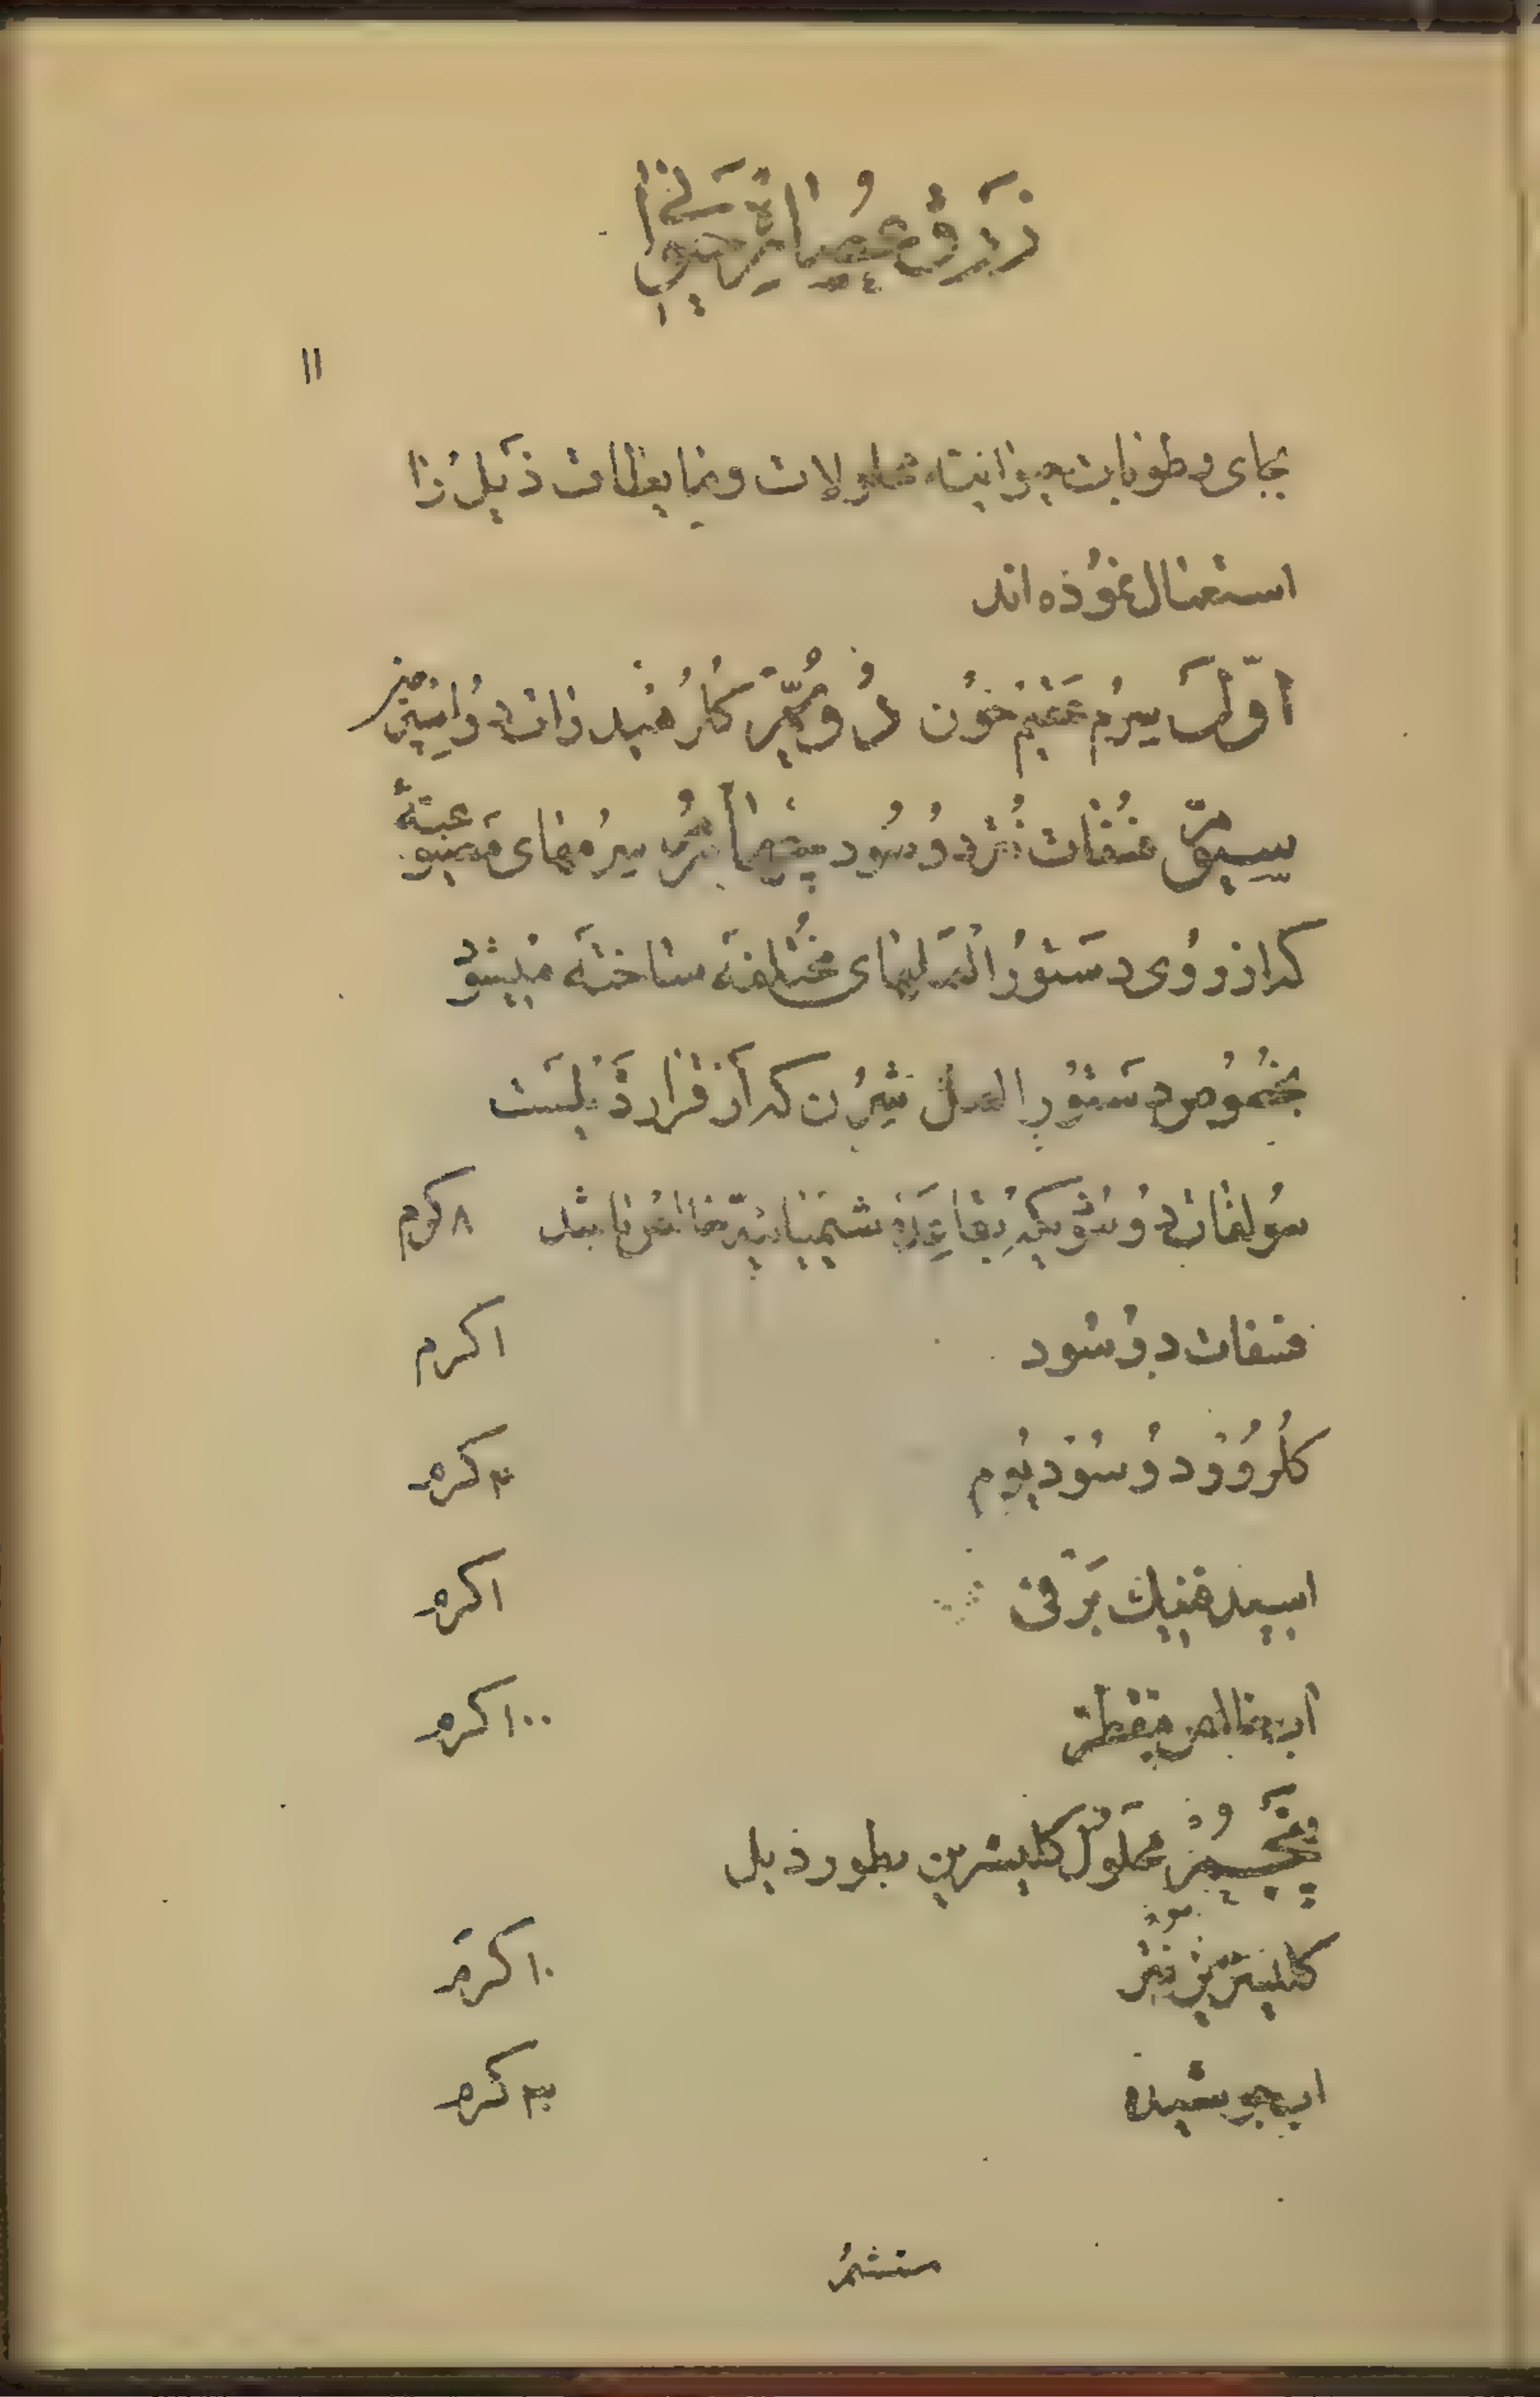 زرق عصاره حیوانی
۱۱
بجای رطوبات حیوانیته محلولات و مایعات ذیل را
استعمال نموده اند
اول سیرم عقیم خون دوم کلرئید
سیم فسفات نتر دو سود پنجم سیرمهای
که از روی دستور العملهای مختلفه ساخته میشود
بخصوص دستور العمل شیرن که از قرار ذیلست
سولفات دو سود یکه بقاعده شیمیائی خالص باشد ۸ کرم
فسفات دو سود ۱ کرم
کلرور دو سودیوم ۲ کرم
اسید فنیک برفی ۱ کرم
آب خالص مقطر ۱۰۰ کرم
محلول کلیسرین بطور ذیل
کلیسرین نتر ۱۰ کرم
اب جوشیده کرم
ششم